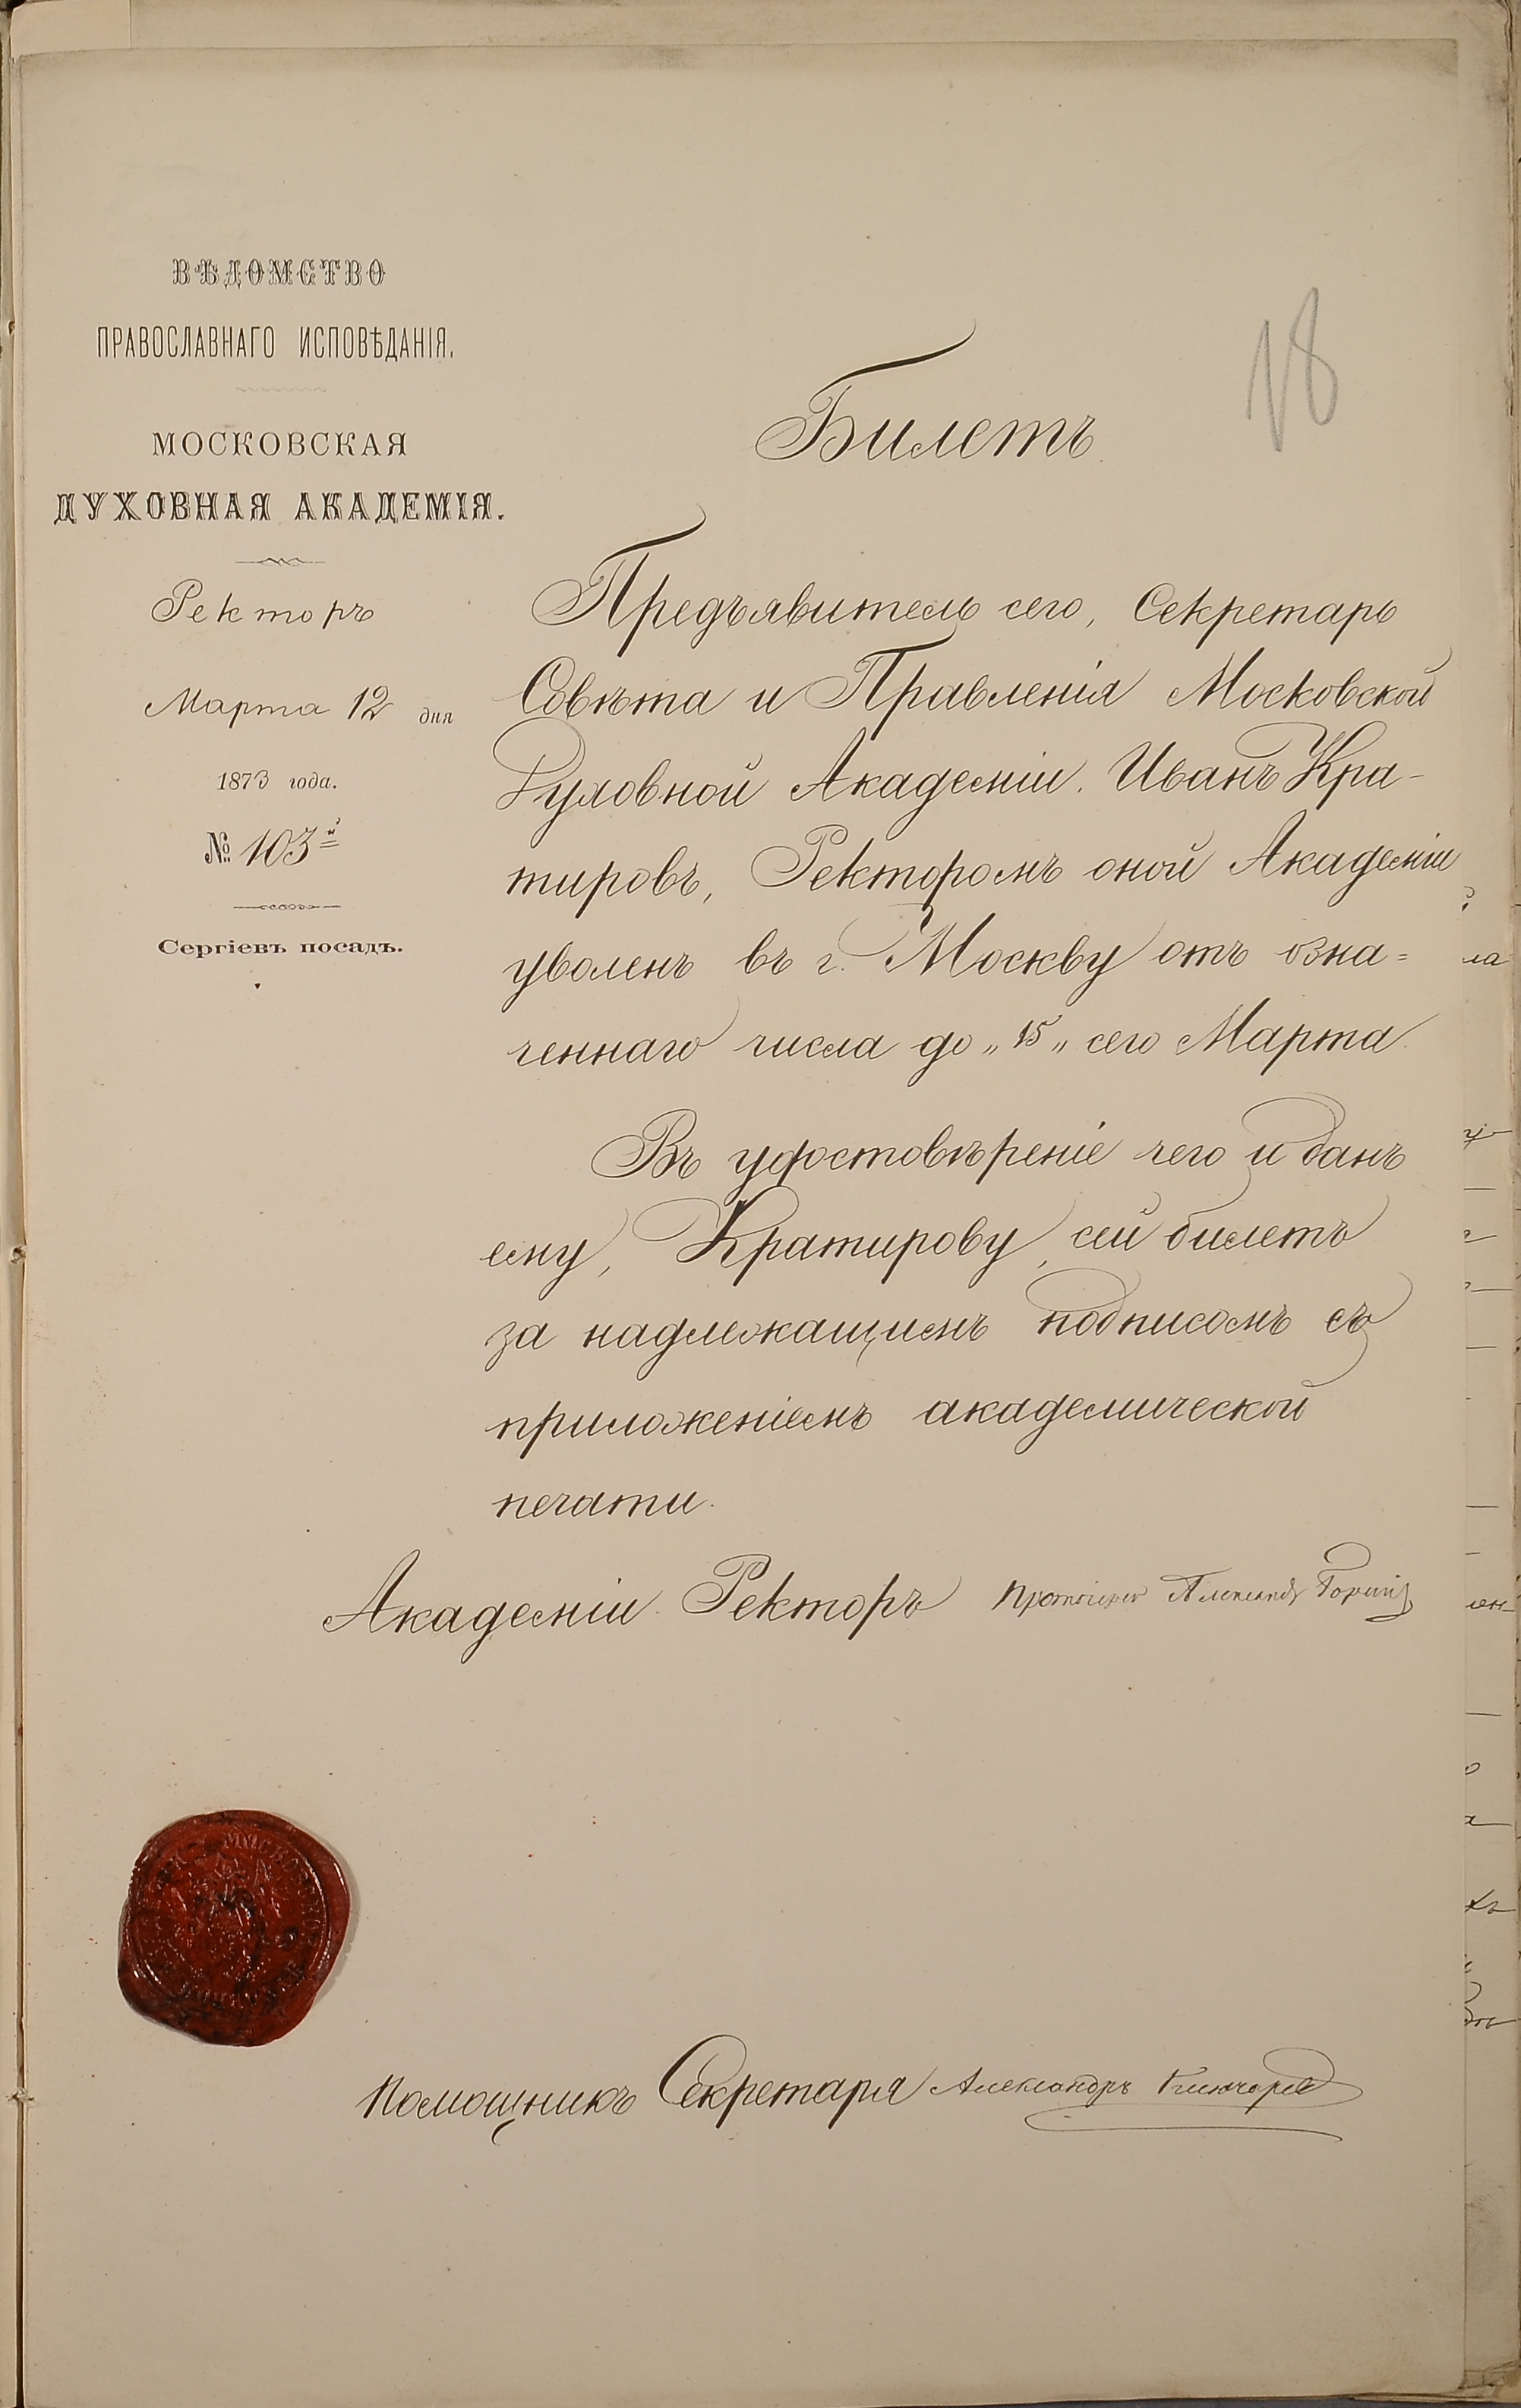 ВѢДОМСТВО
ПРАВОСЛАВНАГО ИСПОВѢДАНІЯ.
МОСКОВСКАЯ
ДУХОВНАЯ АКАДЕМІЯ.
Ректоръ
Марта 12 дня
1873 года.
№ 103й
Сергіевъ посадъ.
18
Билетъ.
Предъявитель сего, Секретарь
Совѣта и Правленія Московской
Духовной Академіи. Иванъ Кра-
тировъ, Ректоромъ оной Академіи
уволенъ въ г. Москву отъ озна=
ченнаго числа до „15„ сего Марта.
Въ удостовѣреніе чего и данъ
ему, Кратирову, сей билетъ
за надлежащимъ подписомъ съ
приложеніемъ академической
печати.
Академіи Ректоръ Протоіерей Александръ Горскій
Помощникъ Секретаря Александръ